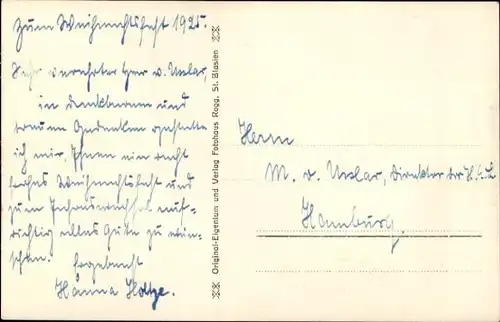 Zum Weihnachtsfest 1925.
Sehr verehrter Herr v. Uslar,
in dankbarem und
treuem Gedenken gestatte
ich mir, Ihnen ein recht
frohes Weihnachtsfest und
zum Jahreswechsel auf-
richtig alles Gute zu wün-
schen. Ergebenst
Hanna Holtze.
Original-Eigentum und Verlag Fotohaus Rogg, St. Blasien
Herrn
M. v. Uslar, Direktor der
Hamburg.